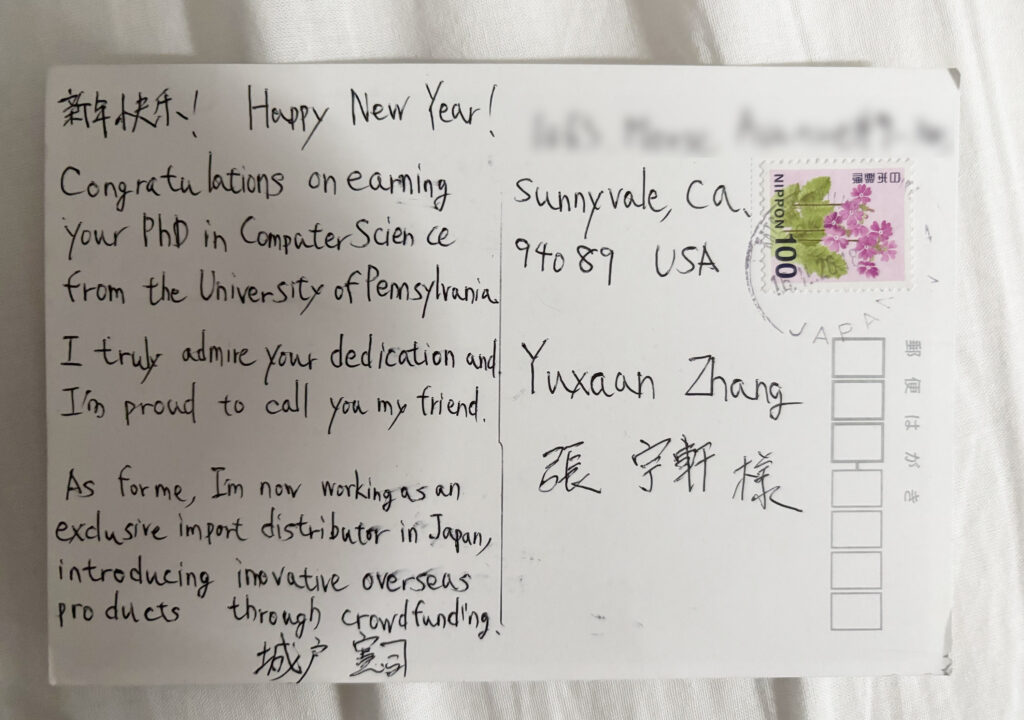 新年快乐! Happy New Year!
Congratulations on earning
your PhD in Computer Science
from the University of Pemsylvania.
I truly admire your dedication and
I'm proud to call you my friend.
As for me, I'm now working as an
exclusive import distributor in Japan,
introducing inovative overseas
products through crowdfunding.
城户 憲司
Sunnyvale, Ca.
94089 USA
Yuxaan Zhang
張 宇軒 様
日本郵便
NIPPON 100
JAPAN
郵便はがき